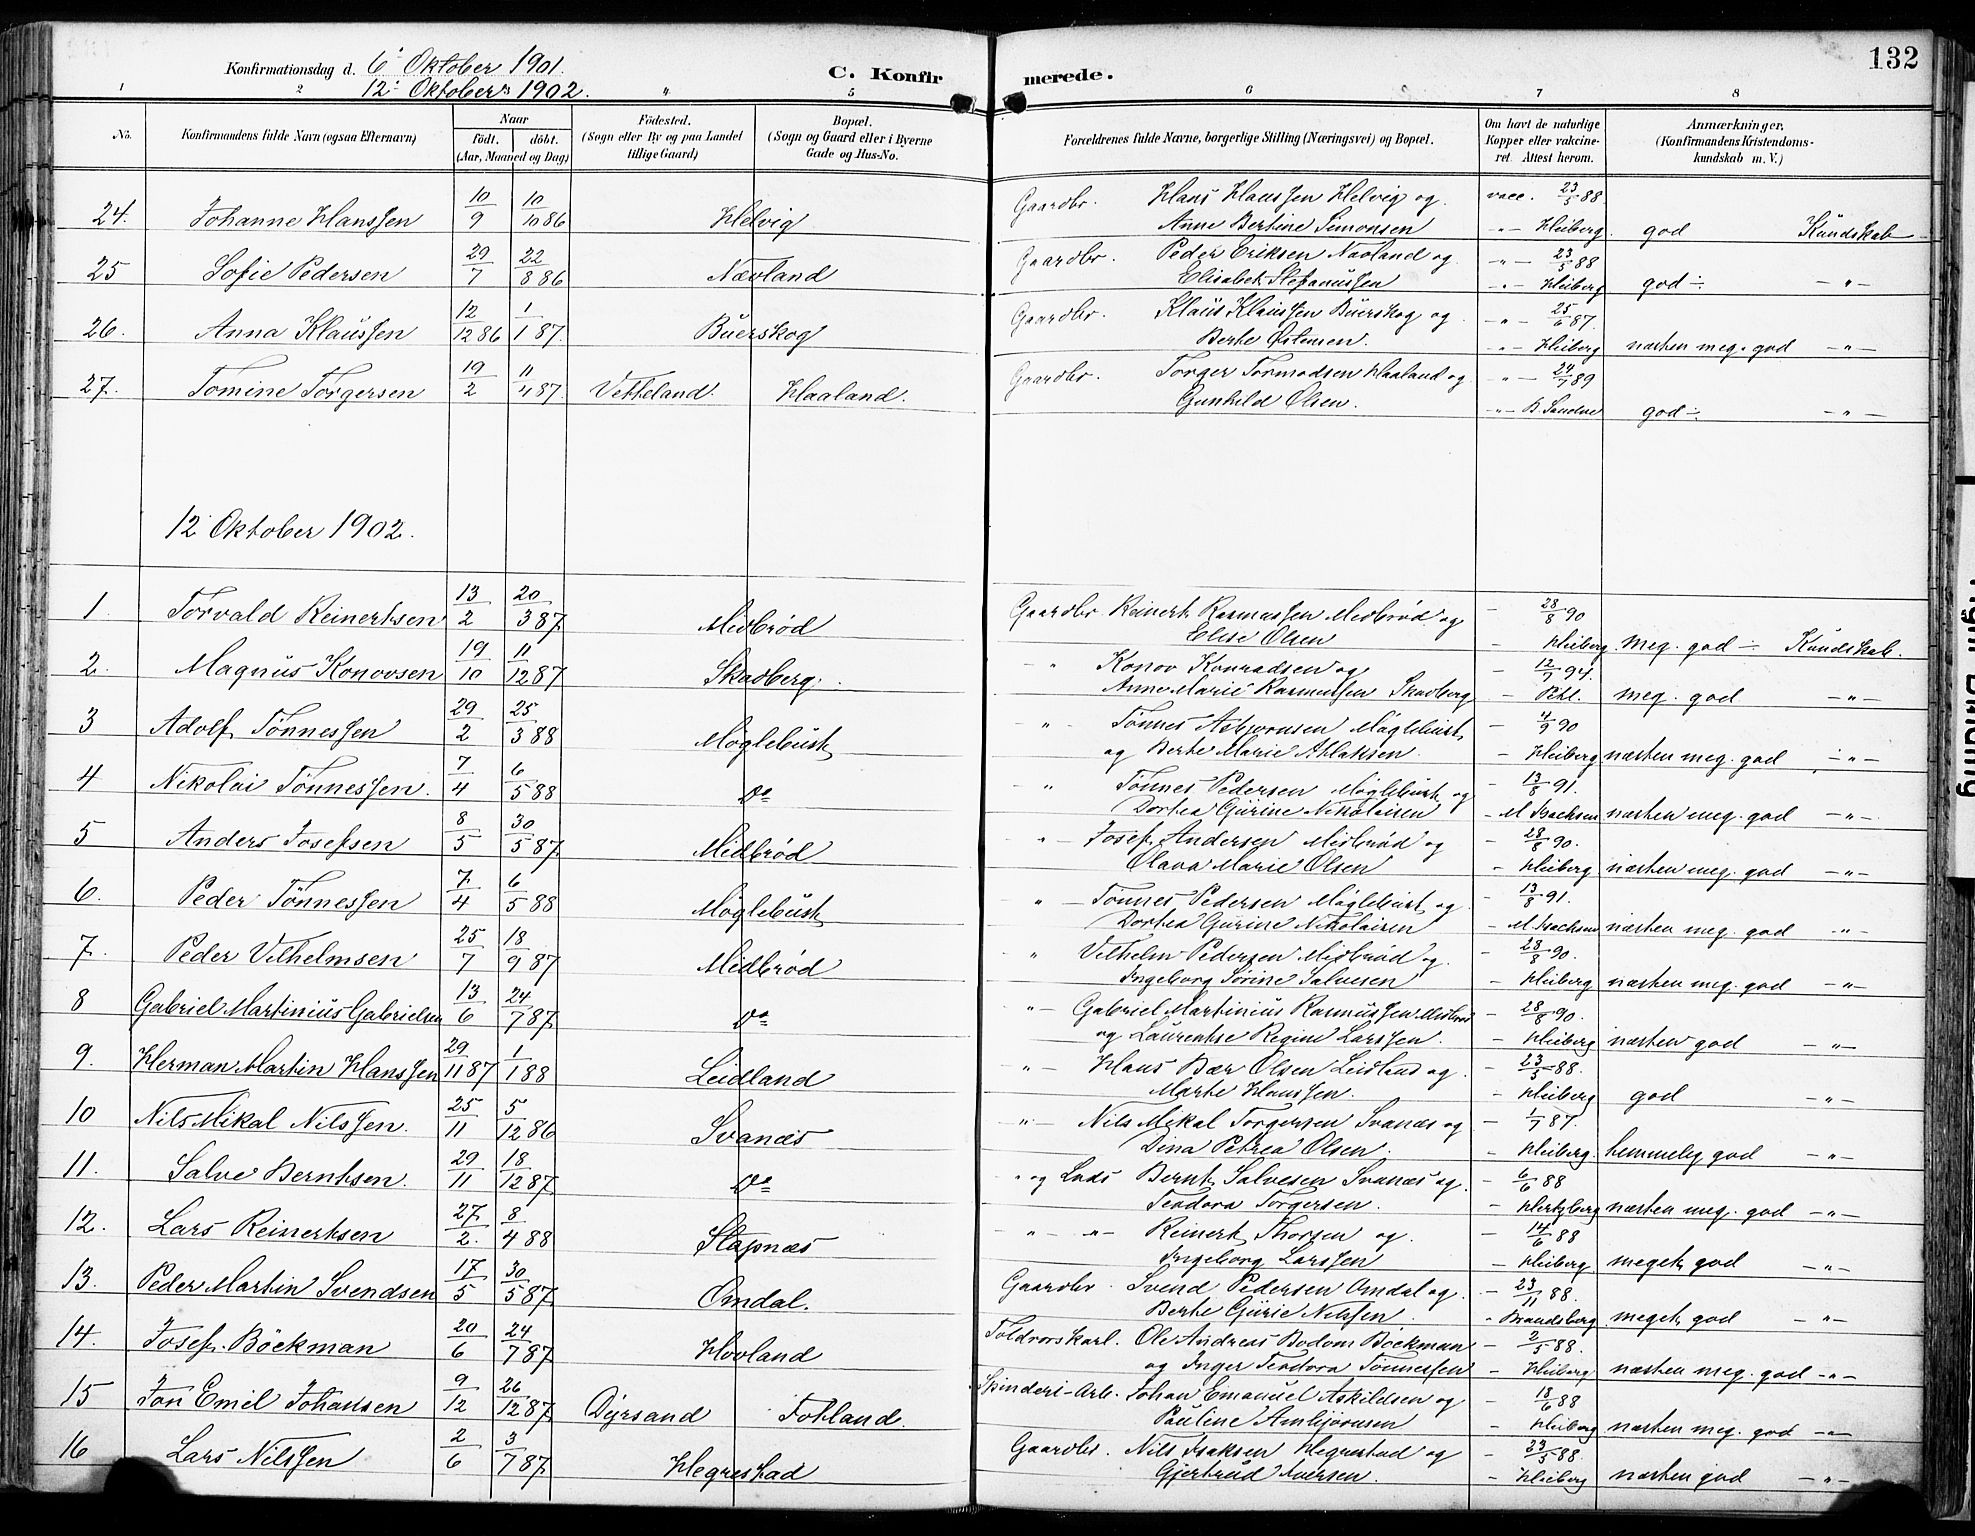 132
Konfirmationsdag d. 6' Oktober 1901.
12' Oktober 1902.
C. Konfirmerede.
1 2 4 5 6 7 8
No. Konfirmandens fulde Navn (ogsaa Efternavn) Naar født. døbt. (Aar, Maaned og Dag) Fødested. (Sogn eller By og paa Landet tillige Gaard) Bopæl. (Sogn og Gaard eller i Byerne Gade og Hus-No. Forældrenes fulde Navne, borgerlige Stilling (Næringsvei) og Bopæl. Om havt de naturlige Kopper eller vaccineret. Attest herom. Anmærkninger. (Konfirmandens Kristendomskundskab m. V.)
24. Johanne Hanssen 10/9 10/10 86 Helvig Gaardbr. Hans Hanssen Helvig og vacc. 23/5 88
Anne Bertine Simonsen -"- Heiberg. god Kundskab
25 Sofie Pedersen 29/7 22/8 86 Nævland Gaardbr. Peder Eriksen Nævland og -"- 23/5 88
Elisabet Stefanussen -"- Heiberg god ÷ -"-
26. Anna Klaussen 12/12 86 1/1 87. Buerskog Gaardbr. Klaus Klaussen Buerskog og -"- 25/6 87.
Berte Ostensen. -"- Heiberg næsten meg. god -"-
27. Tomine Torgersen 19/2 11/4 87. Vetteland. Haaland. Gaardbr. Torger Tormodsen Haaland og -"- 24/7 89
Gunhild Olsen. -"- B. Sandve god ÷ -"-
12 Oktober 1902.
1 Torvald Reinertsen 13/2 20/3 87. Midbrød Gaardbr Reinert Rasmussen Midbrød og - 28/8 90
Elise Olsen - Heiberg. meg. god ÷ Kundskab.
2. Magnus Konovsen 19/10 11/12 87 Skadberg. " Konov Konradsen og - 12/7 94.
Anne Marie Rasmussen Skadberg - Pihl. meg. god -"-
3 Adolf Tønnessen 29/2 25/3 88 Møglebust -"- Tønnes Asbjørnsen Møglebust - 4/9 90
og Berte Marie Atlaksen. - Heiberg næsten meg. god -"-
4 Nikolai Tønnessen. 7/4 6/5 88 Do " Tønnes Pedersen Møglebust og - 13/8 91.
Dortea Gurine Nikolaisen - M Isachsen næsten meg. god -"-
5 Anders Josefsen 8/5 30/5 87. Midbrød -"- Josef Andersen Midbrød og - 28/8 90.
Olava Marie Olsen - Heiberg næsten meg. god -"-
6. Peder Tønnessen 7/4 6/5 88 Møglebust -"- Tønnes Pedersen Møglebust og - 13/8 91.
Dortea Gurine Nikolaisen - M. Isachsen næsten meg. god -"-
7. Peder Vilhelmsen 25/7 18/9 87 Midbrød " Vilhelm Pedersen Midbrød og. - 28/8 90.
Ingeborg Sørine Salvesen - Heiberg næsten meg. god -"-
8 Gabriel Martinius Gabrielsen 13/6 24/7 87. Do "- Gabriel Martinius Rasmussen Midbrød - 28/8 90.
og Laurentse Regine Larssen. - Heiberg næsten god -"-
9. Herman Martin Hanssen 29/11 87 1/1 88 Leidland "- Hans Bær Olsen Leidland og - 23/5 88.
Marte Hanssen. - Heiberg god -"-
10 Nils Mikal Nilssen. 25/11 5/12 86 Svanæs "- Nils Mikal Torgersen Svanæs og - 1/7 87.
Dina Petrea Olsen. - Heiberg. temmelig god -"-
11. Salve Berntsen. 29/11 18/12 87. Do " og Lods Bernt Salvesen Svanæs og. - 6/6 88
Teodora Torgersen. - Hertzberg næsten meg. god -"-
12. Lars Reinertsen 27/2. 8/4 88 Stapnæs -"- Reinert Thorsen og. - 14/6 88
Ingeborg Larssen - Heiberg. meget god -"-
13. Peder Martin Svendsen 17/5 30/5 87. Omdal. Gaardbr. Svend Pedersen Omdal og - 23/11 88.
Berte Gurie Nilssen. " Brandsberg meget god -"-
14. Josef Böckman 20/6 24/7 87. Hovland Toldvorskarl. Ole Andreas Bodom Böckman - 2/5 88.
og Inger Teodora Tønnessen - Heiberg næsten meg. god -"-
15 Jon Emil Johansen 9/12 26/12 87. Dyrsand Fotland. Spinderi-Arb. Johan Emanuel Askildsen og - 18/6 88
Pauline Ambjørnsen - Heiberg næsten meg. god -"-
16 Lars Nilssen 2/6 3/7 87. Hegrestad Gaardbr. Nils Isaksen Hegrestad og - 23/5 88.
Gjertrud Iversen. - Heiberg næsten god -"-